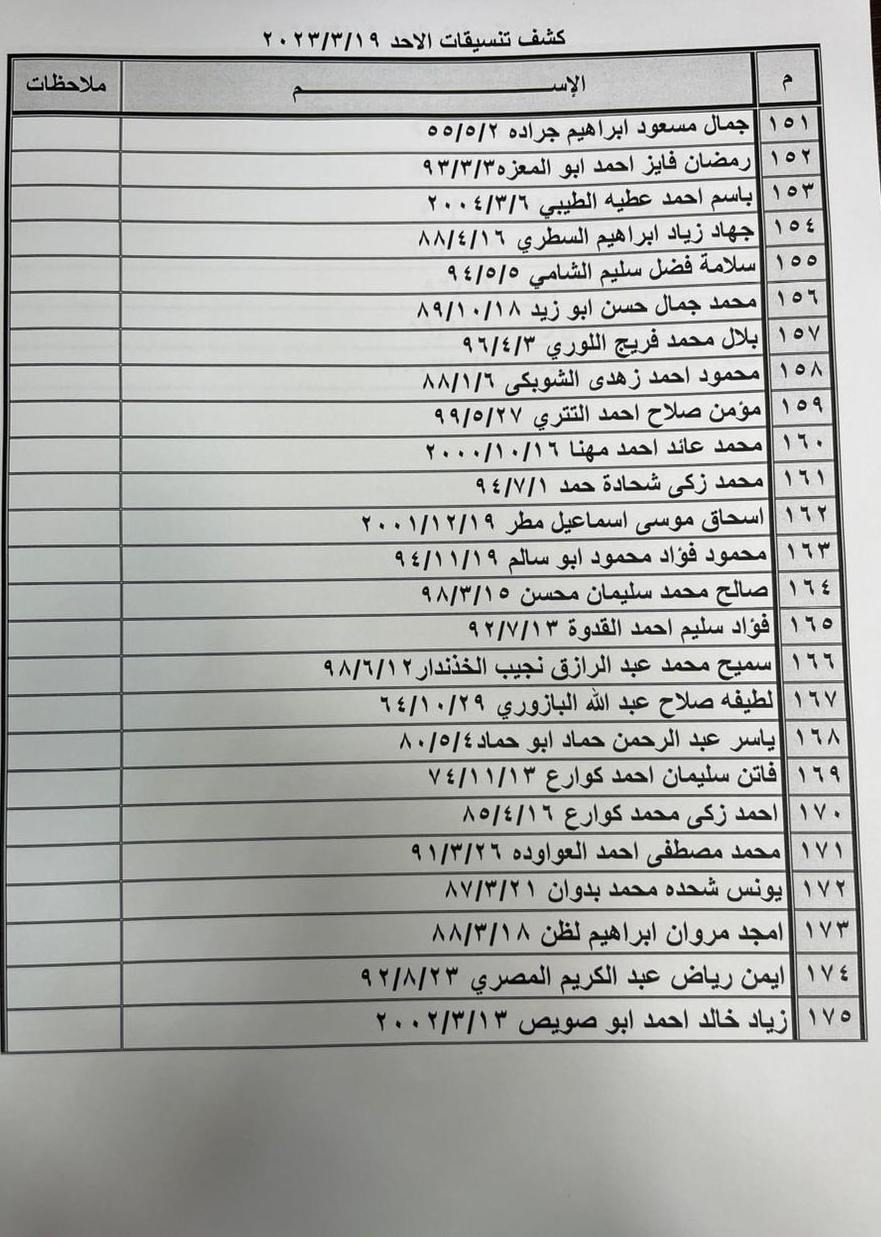 كشف تنسيقات الاحد ٢٠٢٣/٣/١٩
م الإســـــــــــــــــــــــم ملاحظات
١٥١ جمال مسعود ابراهيم جراده ٥٥/٥/٢
١٥٢ رمضان فايز احمد ابو المعزه٩٣/٣/٣
١٥٣ باسم احمد عطيه الطيبي ٢٠٠٤/٣/٦
١٥٤ جهاد زياد ابراهيم السطري ٨٨/٤/١٦
١٥٥ سلامة فضل سليم الشامي ٩٤/٥/٥
١٥٦ محمد جمال حسن ابو زيد ٨٩/١٠/١٨
١٥٧ بلال محمد فريج اللوري ٩٦/٤/٣
١٥٨ محمود احمد زهدى الشوبكى ٨٨/١/٦
١٥٩ مؤمن صلاح احمد التتري ٩٩/٥/٢٧
١٦٠ محمد عائد احمد مهنا ٢٠٠٠/١٠/١٦
١٦١ محمد زكى شحادة حمد ٩٤/٧/١
١٦٢ اسحاق موسى اسماعيل مطر ٢٠٠١/١٢/١٩
١٦٣ محمود فؤاد محمود ابو سالم ٩٤/١١/١٩
١٦٤ صالح محمد سليمان محسن ٩٨/٣/١٥
١٦٥ فؤاد سليم احمد القدوة ٩٢/٧/١٣
١٦٦ سميح محمد عبد الرازق نجيب الخذندار٩٨/٦/١٢
١٦٧ لطيفه صلاح عبد الله البازوري ٦٤/١٠/٢٩
١٦٨ ياسر عبد الرحمن حماد ابو حماد٨٠/٥/٤
١٦٩ فاتن سليمان احمد كوارع ٧٤/١١/١٣
١٧٠ احمد زكى محمد كوارع ٨٥/٤/١٦
١٧١ محمد مصطفى احمد العواوده ٩١/٣/٢٦
١٧٢ يونس شحده محمد بدوان ٨٧/٣/٢١
١٧٣ امجد مروان ابراهيم لظن ٨٨/٣/١٨
١٧٤ ايمن رياض عبد الكريم المصري ٩٢/٨/٢٣
١٧٥ زياد خالد احمد ابو صويص ٢٠٠٢/٣/١٣